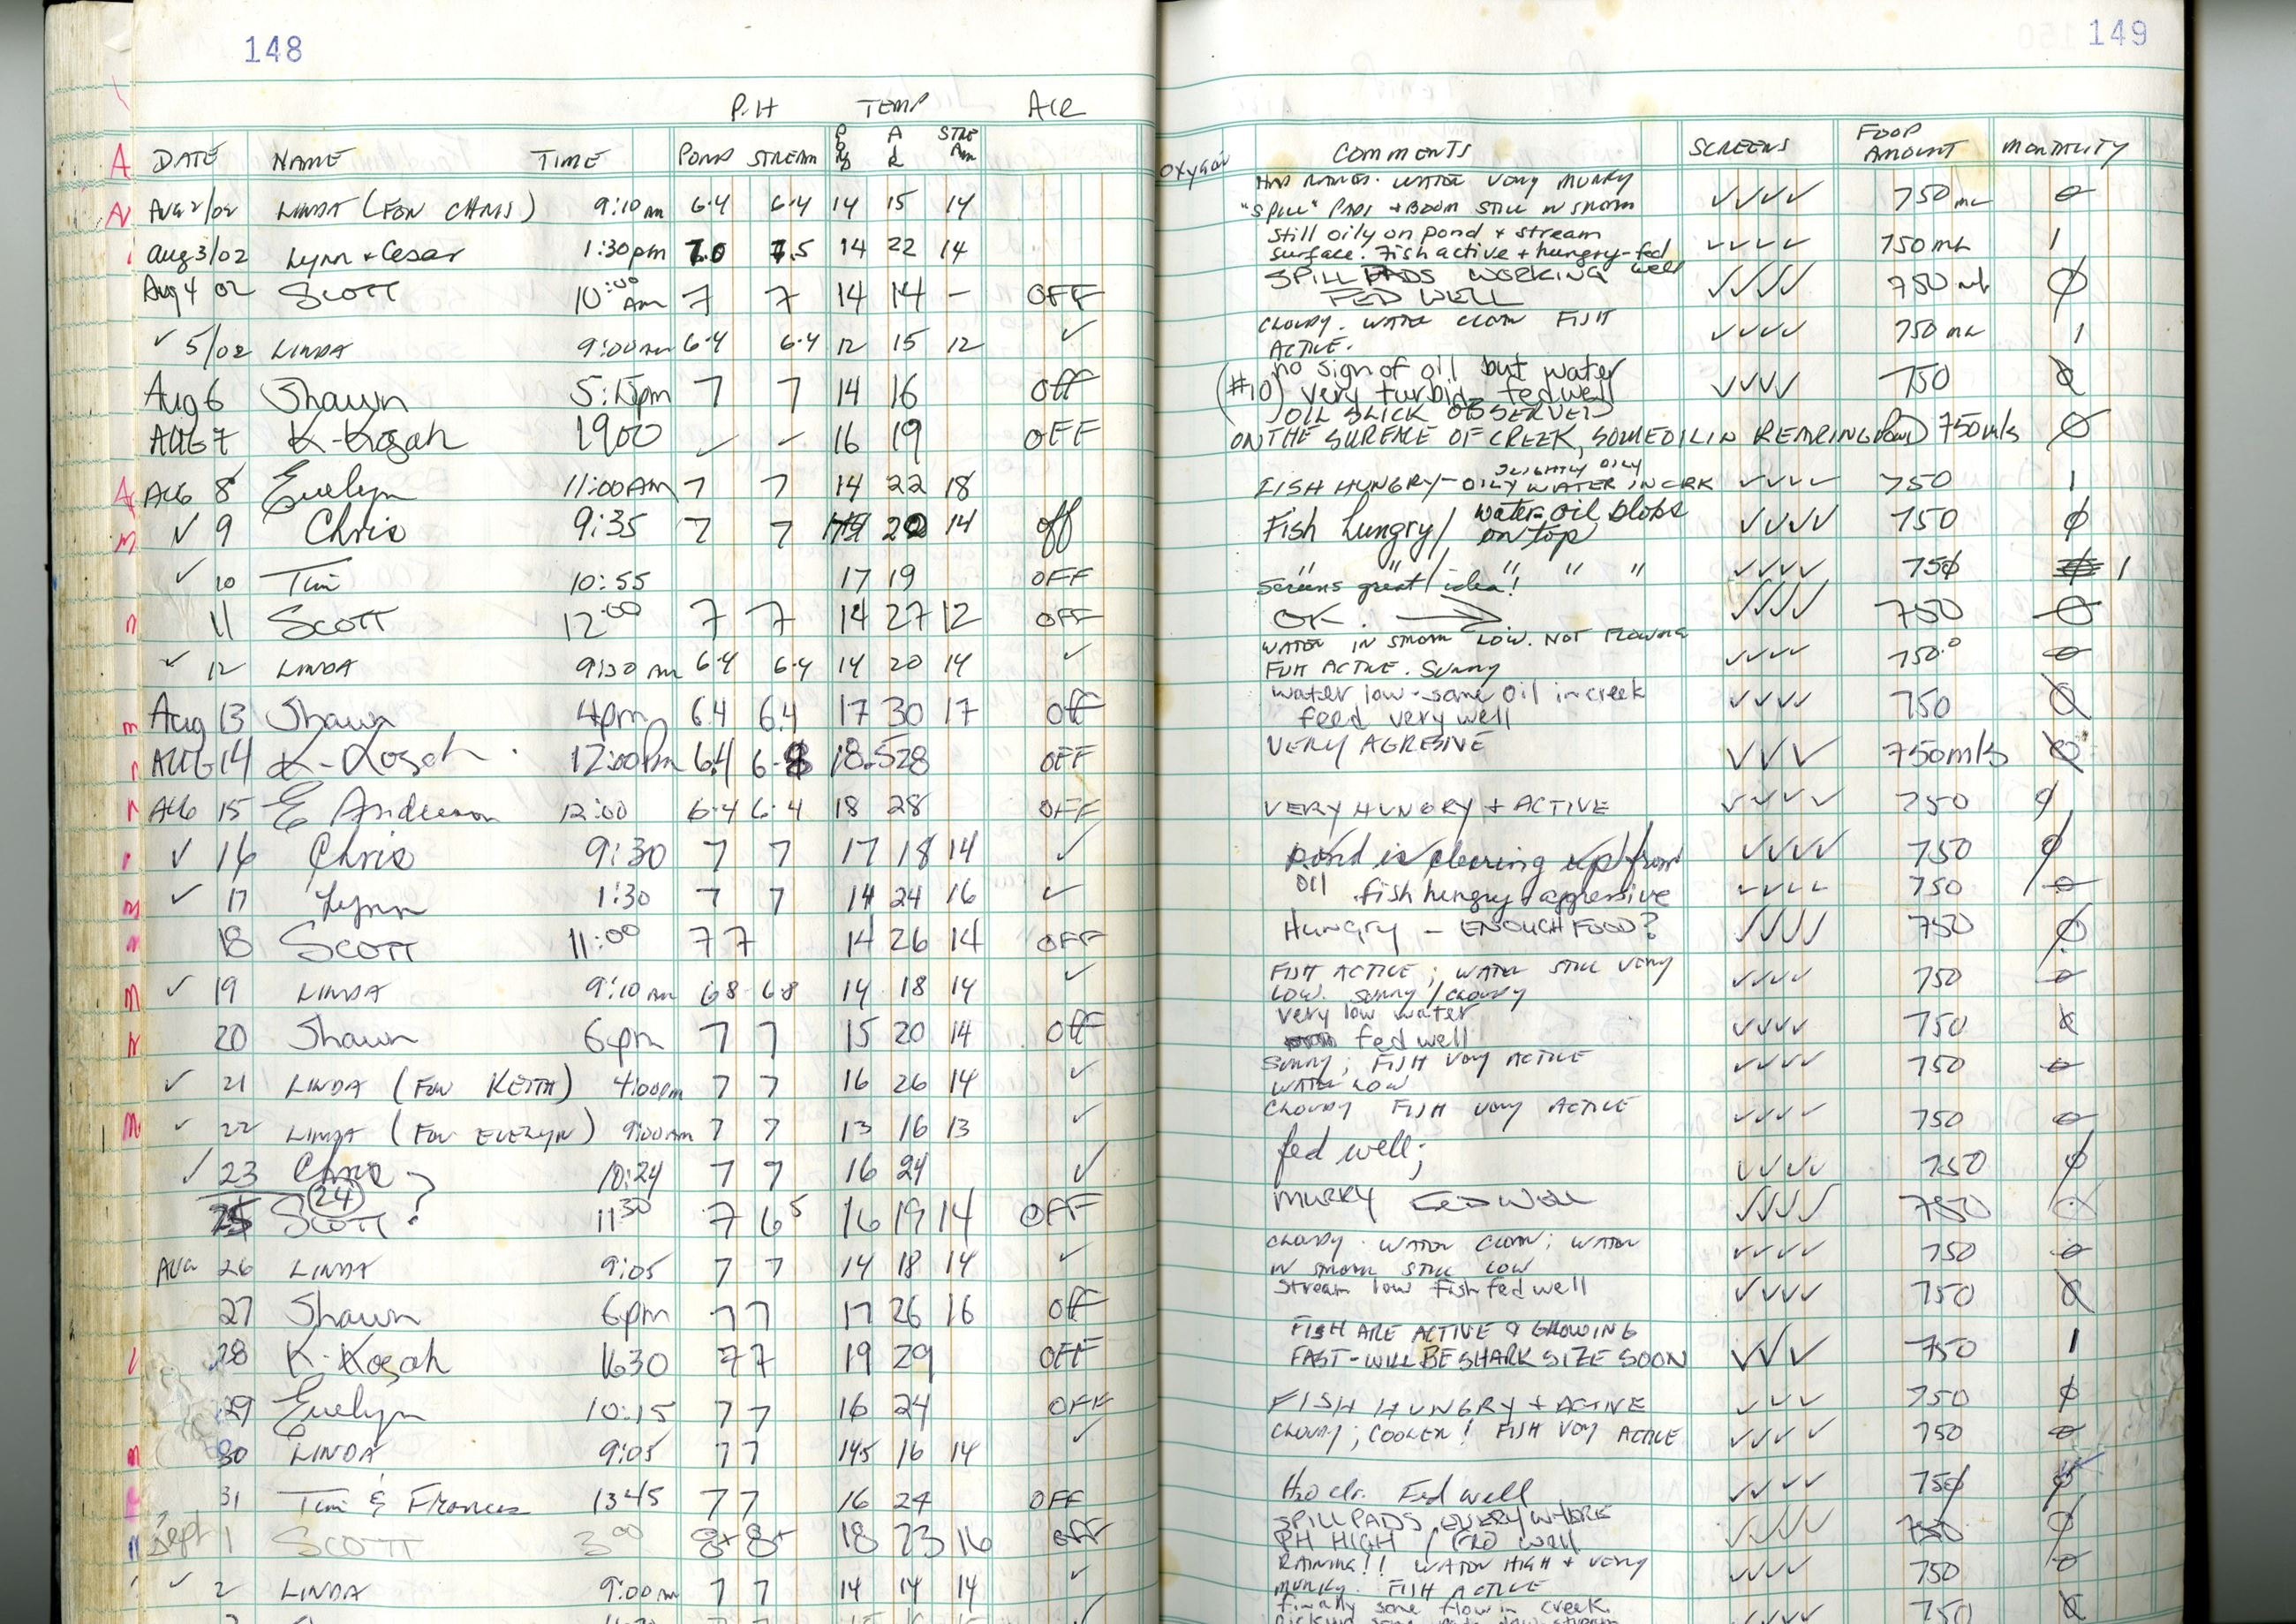 148
P.H TEMP AIR
DATE NAME TIME POND STREAM POND AIR STREAM
AUG 2/02 LINDA (FOR CHRIS) 9:10 AM 6.4 6.4 14 15 14
Aug 3/02 Lynn + Cesar 1:30pm 7.0 7.5 14 22 14
Aug 4 02 SCOTT 10:00 Am 7 7 14 14 - OFF
✓ 5/02 LINDA 9:00 AM 6.4 6.4 12 15 12 ✓
Aug 6 Shawn 5:15pm 7 7 14 16 Off
AUG 7 K-Kogah 1900 ✓ - 16 19 OFF
AUG 8 Evelyn 11:00AM 7 7 14 22 18
✓ 9 Chris 9:35 7 7 14 20 14 off
✓ 10 Tim 10:55 17 19 OFF
11 SCOTT 12:00 7 7 14 27 12 OFF
✓ 12 LINDA 9:30 AM 6.4 6.4 14 20 14 ✓
Aug 13 Shawn 4pm 6.4 6.4 17 30 17 Off
AUG 14 K-Kogah 12:00Pm 6.4 6.8 18.5 28 OFF
AUG 15 E Anderson 12:00 6.4 6.4 18 28 OFF
✓ 16 Chris 9:30 7 7 17 18 14 ✓
✓ 17 Lynn 1:30 7 7 14 24 16 ✓
18 SCOTT 11:00 7 7 14 26 14 OFF
✓ 19 LINDA 9:10 AM 6.8 6.8 14 18 14 ✓
20 Shawn 6pm 7 7 15 20 14 Off
✓ 21 LINDA (FOR KEITH) 4:00pm 7 7 16 26 14 ✓
✓ 22 LINDA (FOR EVELYN) 9:00AM 7 7 13 16 13 ✓
✓ 23 Chris 10:24 7 7 16 24 ✓
(24) ?
25 SCOTT 11:30 7 6.5 16 19 14 OFF
AUG 26 LINDA 9:05 7 7 14 18 14 ✓
27 Shawn 6pm 7 7 17 26 16 Off
28 K-Kogah 1630 7 7 19 29 OFF
29 Evelyn 10:15 7 7 16 24 OFF
30 LINDA 9:05 7 7 14.5 16 14 ✓
31 Tim & Frances 1345 7 7 16 24 OFF
Sept 1 SCOTT 3:00 8+ 8+ 18 23 16 OFF
✓ 2 LINDA 9:00am 7 7 14 14 14 ✓
149
OXYGEN COMMENTS SCREENS FOOD AMOUNT MORTALITY
HAD RAINED. WATER VERY MURKY
"SPILL" PADS + BOOM STILL IN STREAM ✓✓✓✓ 750 mL 0
Still oily on pond + stream
surface. Fish active + hungry-fed well ✓✓✓✓ 750 mL 1
SPILL PADS WORKING
FED WELL ✓✓✓✓ 750 mL Ø
CLOUDY. WATER CLEAR FISH
ACTIVE. ✓✓✓✓ 750 mL 1
no sign of oil but water
(#10) very turbid, fed well ✓✓✓✓ 750 Ø
OIL SLICK OBSERVED
ON THE SURFACE OF CREEK, SOME OIL IN REARING Pond 750mls Ø
SLIGHTLY OILY
FISH HUNGRY - OILY WATER IN CRK ✓✓✓✓ 750 1
Fish hungry / water-oil blobs
on top ✓✓✓✓ 750 Ø
" " " " "
Screens great idea! ✓✓✓✓ 750 1
OK. → ✓✓✓✓ 750 Ø
WATER IN STREAM LOW. NOT FLOWING
FISH ACTIVE. SUNNY ✓✓✓✓ 750 0
water low - some oil in creek
feed very well ✓✓✓✓ 750 Ø
VERY AGRESIVE ✓✓✓ 750mls Ø
VERY HUNGRY + ACTIVE ✓✓✓✓ 750 Ø
Pond is clearing up from ✓✓✓✓ 750 Ø
oil fish hungry + aggressive ✓✓✓✓ 750 0
HUNGRY - ENOUGH FOOD? ✓✓✓✓ 750 Ø
FISH ACTIVE; WATER STILL VERY
LOW. SUNNY / CLOUDY ✓✓✓✓ 750 0
very low water
fed well ✓✓✓✓ 750 Ø
SUNNY; FISH VERY ACTIVE
WATER LOW ✓✓✓✓ 750 0
CLOUDY FISH VERY ACTIVE ✓✓✓✓ 750 0
fed well; ✓✓✓✓ 750 Ø
MURKY FED WELL ✓✓✓✓ 750 Ø
CLOUDY. WATER CLEAR; WATER
IN STREAM STILL LOW ✓✓✓✓ 750 0
Stream low Fish fed well ✓✓✓✓ 750 Ø
FISH ARE ACTIVE & GROWING
FAST - WILL BE SHARK SIZE SOON ✓✓✓ 750 1
FISH HUNGRY + ACTIVE ✓✓✓ 750 Ø
CLOUDY; COOLER! FISH VERY ACTIVE ✓✓✓✓ 750 0
H2O clr. Fed well ✓✓✓✓ 750 Ø
SPILL PADS EVERYWHERE
PH HIGH, FED WELL ✓✓✓✓ 750 Ø
RAINING!! WATER HIGH + VERY
MURKY. FISH ACTIVE ✓✓✓✓ 750 0
finally some flow in creek ✓✓✓✓ 750 Ø